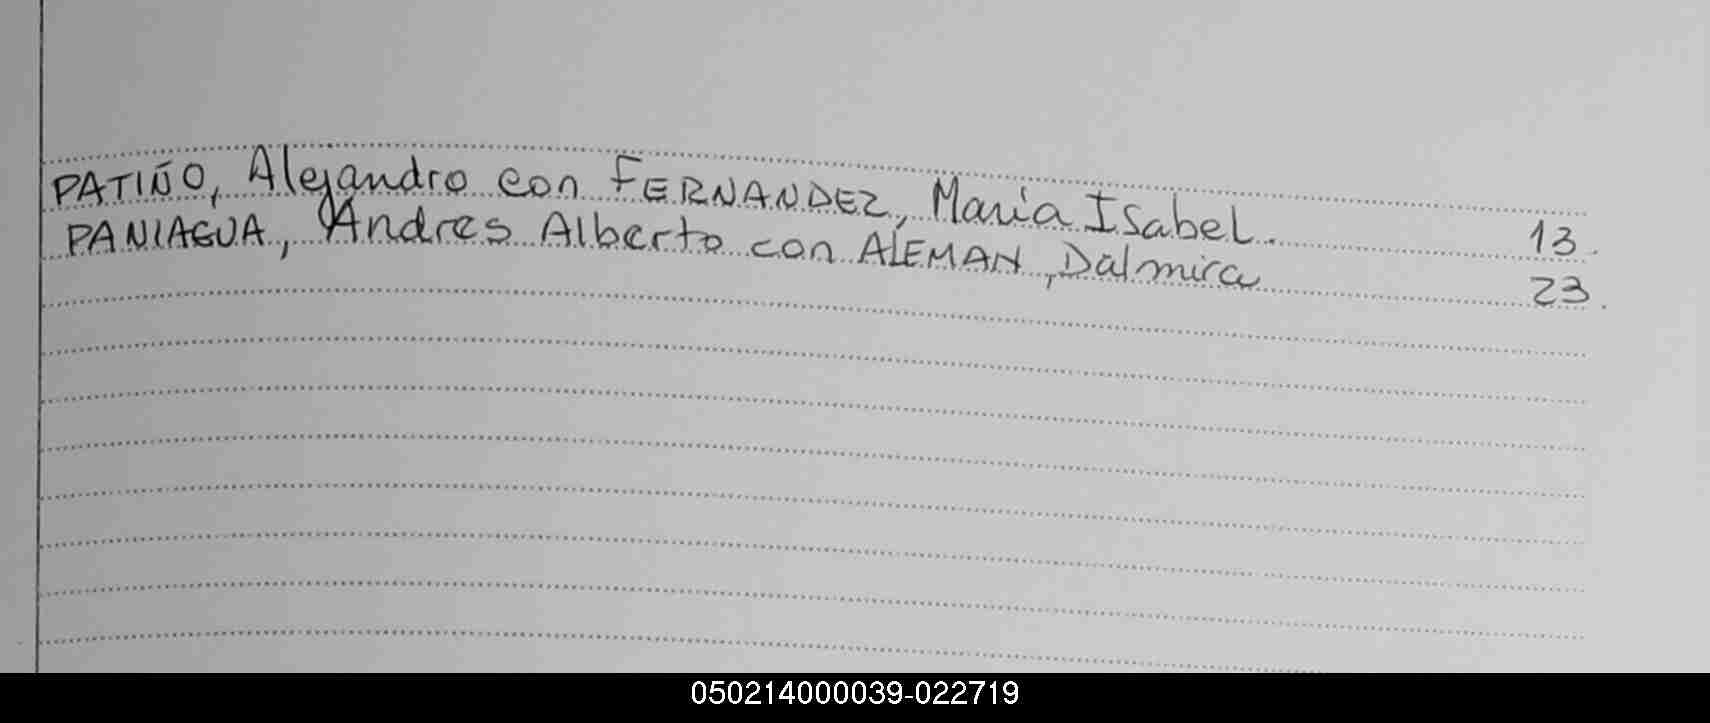 PATIÑO, Alejandro con FERNANDEZ, María Isabel. 13.
PANIAGUA, Andres Alberto con ALEMAN, Dalmira 23.
050214000039-022719